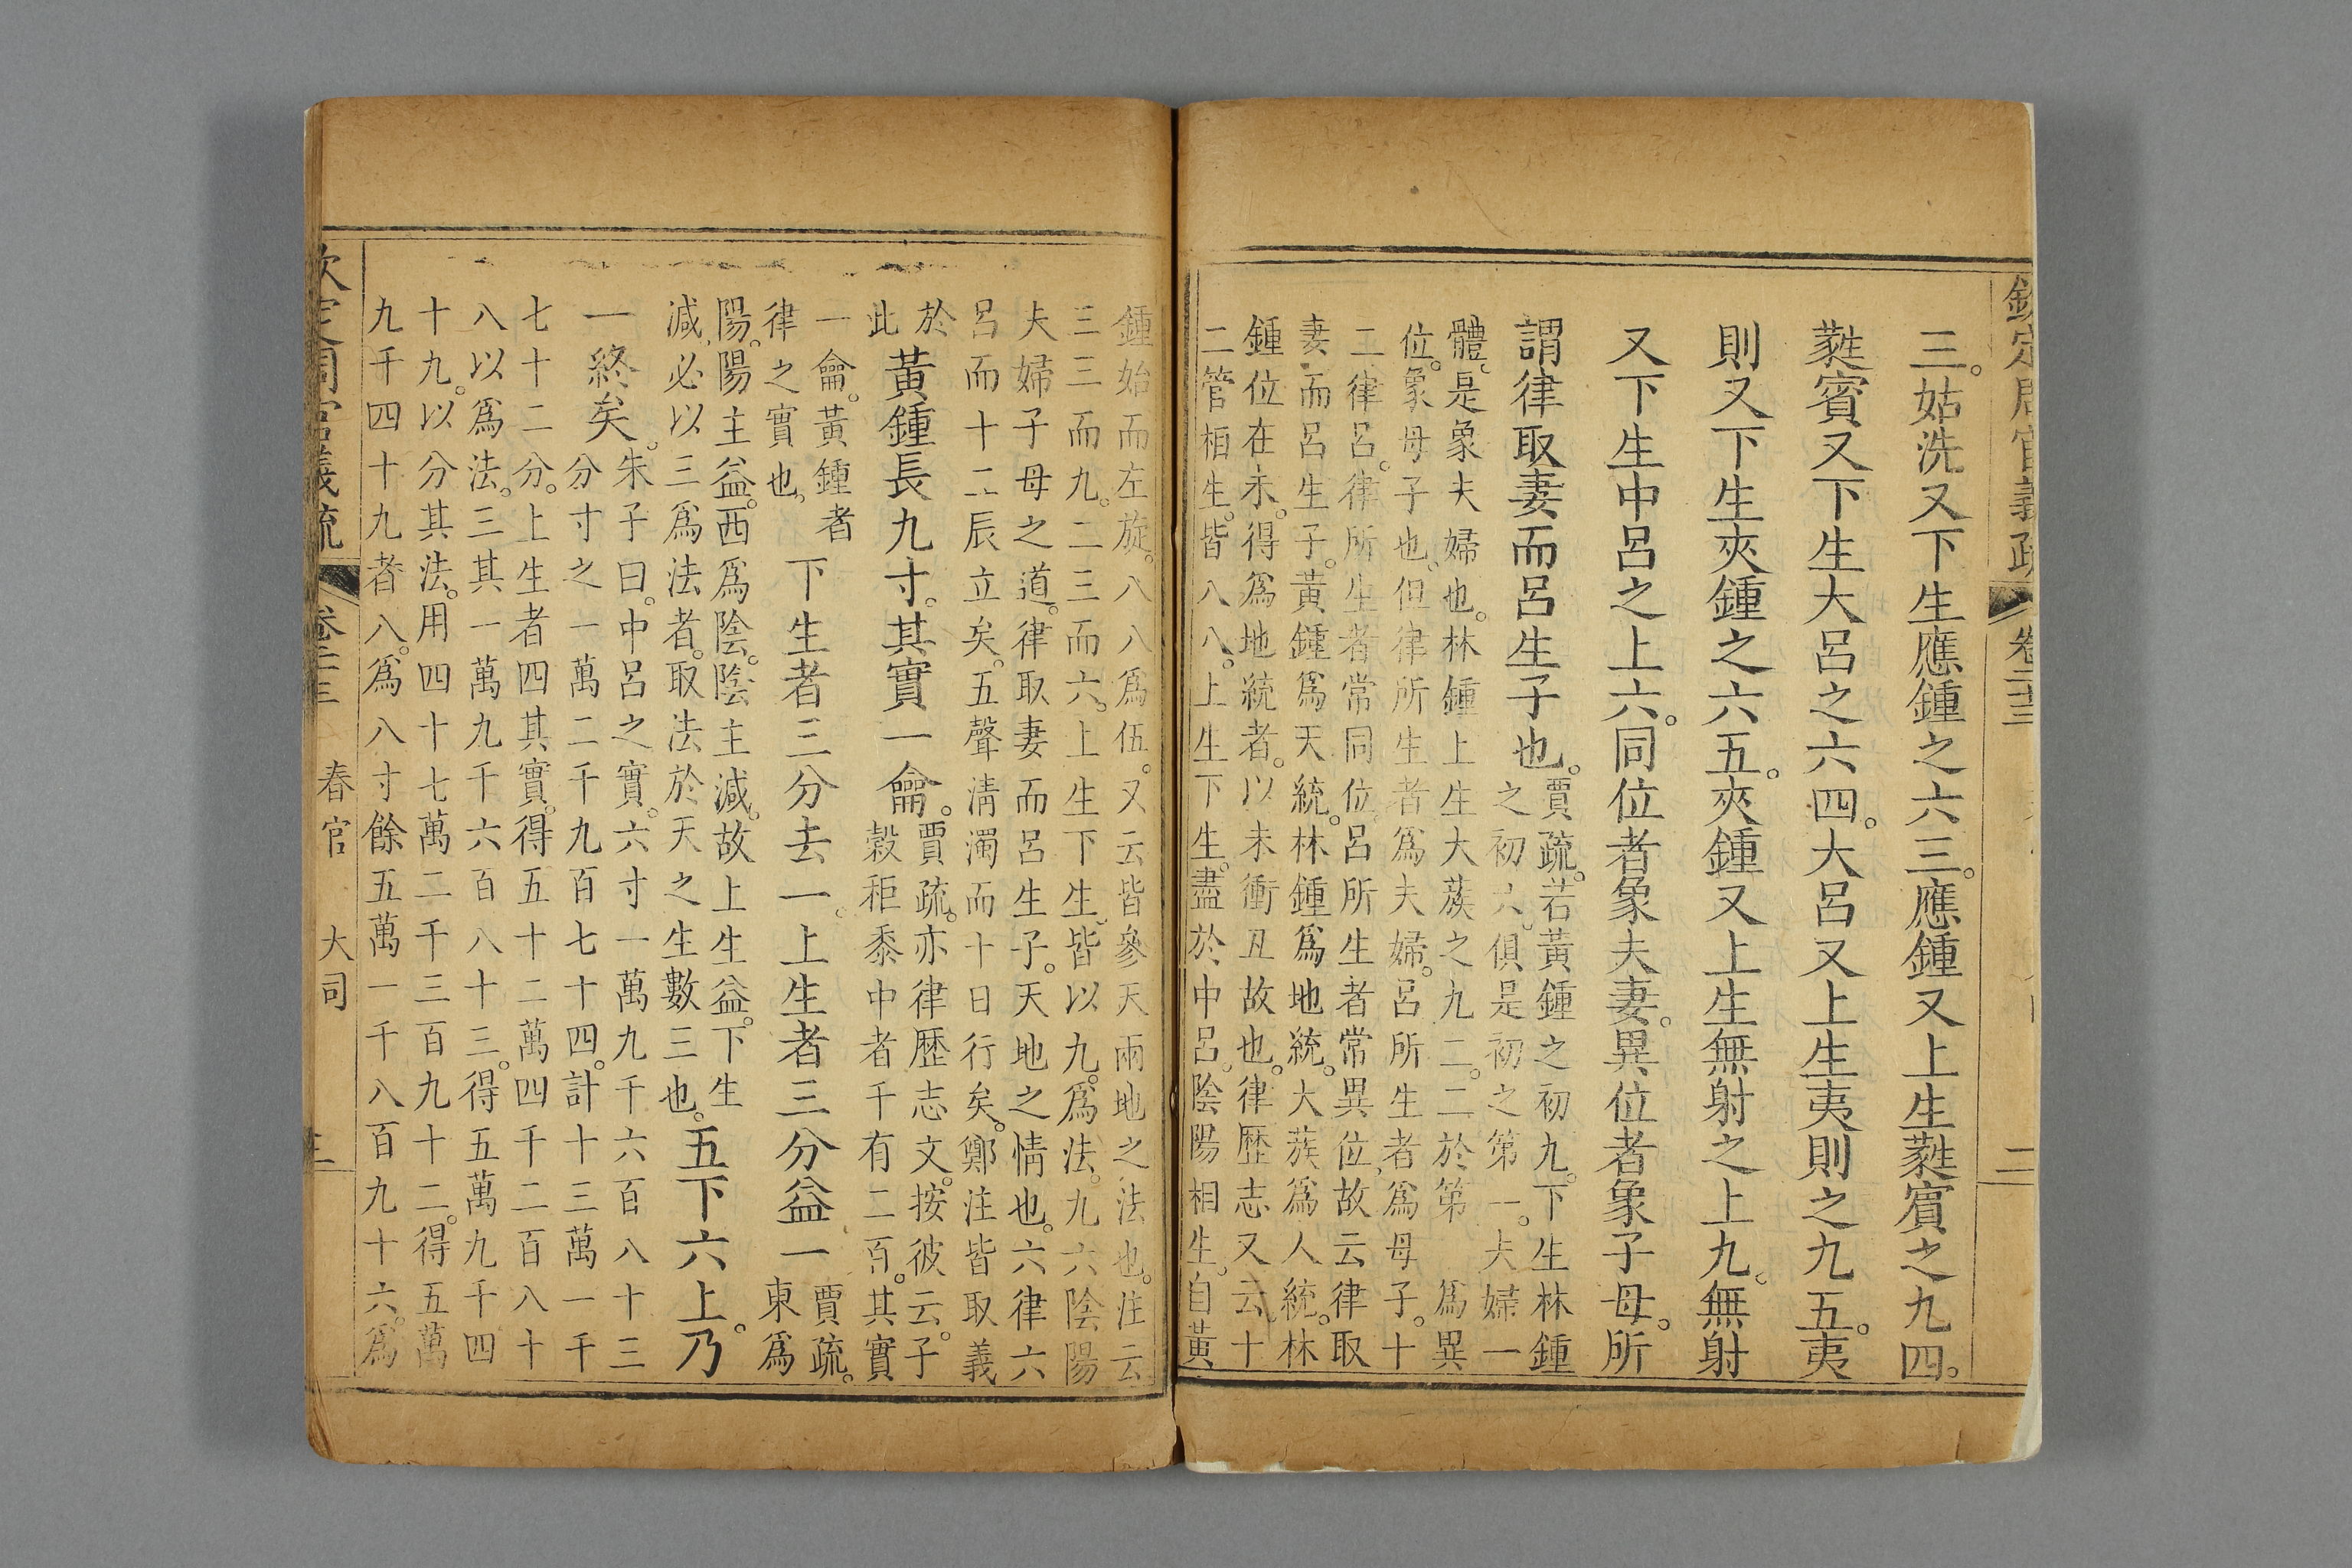 欽定周官義疏 卷二十三 二
三。姑洗又下生應鍾之六三。應鍾又上生蕤賓之九四。
蕤賓又下生大呂之六四。大呂又上生夷則之九五。夷
則又下生夾鍾之六五。夾鍾又上生無射之上九。無射
又下生中呂之上六。同位者象夫妻。異位者象子母。所
謂律取妻而呂生子也。
賈疏。若黃鍾之初九。下生林鍾
之初六。俱是初之第一。夫婦一
體。是象夫婦也。林鍾上生大蔟之九二。二於第 爲異
位。象母子也。但律所生者爲夫婦。呂所生者爲母子。十
二律呂。律所生者常同位。呂所生者常異位。故云律取
妻。而呂生子。黃鍾爲天統。林鍾爲地統。大蔟爲人統。林
鍾位在未。得爲地統者。以未衝丑故也。律歷志又云。十
二管相生。皆八八。上生下生。盡於中呂。陰陽相生。自黃
鍾始而左旋。八八爲伍。又云皆參天兩地之法也。注云
三三而九。二三而六。上生下生。皆以九。爲法。九六陰陽
夫婦子母之道。律取妻而呂生子。天地之情也。六律六
呂而十二辰立矣。五聲清濁而十日行矣。鄭注皆取義
於
此
黃鍾長九寸。其實一龠。
賈疏。亦律歷志文。按彼云。子
穀秬黍中者千有二百。其實
一龠。黃鍾者
律之實也。
下生者三分去一。上生者三分益一
賈疏。
東爲
陽。陽主益。西爲陰。陰主減。故上生益。下生
減。必以三爲法者。取法於天之生數三也。
五下六上。乃
一終矣。
朱子曰。中呂之實。六寸一萬九千六百八十三
分寸之一萬二千九百七十四。計十三萬一千
七十二分。上生者四其實。得五十二萬四千二百八十
八以爲法。三其一萬九千六百八十三。得五萬九千四
十九。以分其法。用四十七萬二千三百九十二。得五萬
九千四十九者八。爲八寸餘五萬一千八百九十六。爲
欽定周官義疏 卷二十三 春官 大司 三